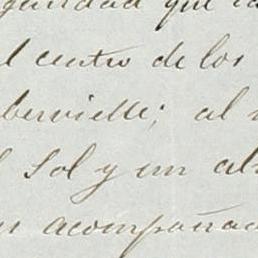 que
l centro de los
bervielle; al
l Sol y un al
acompaña